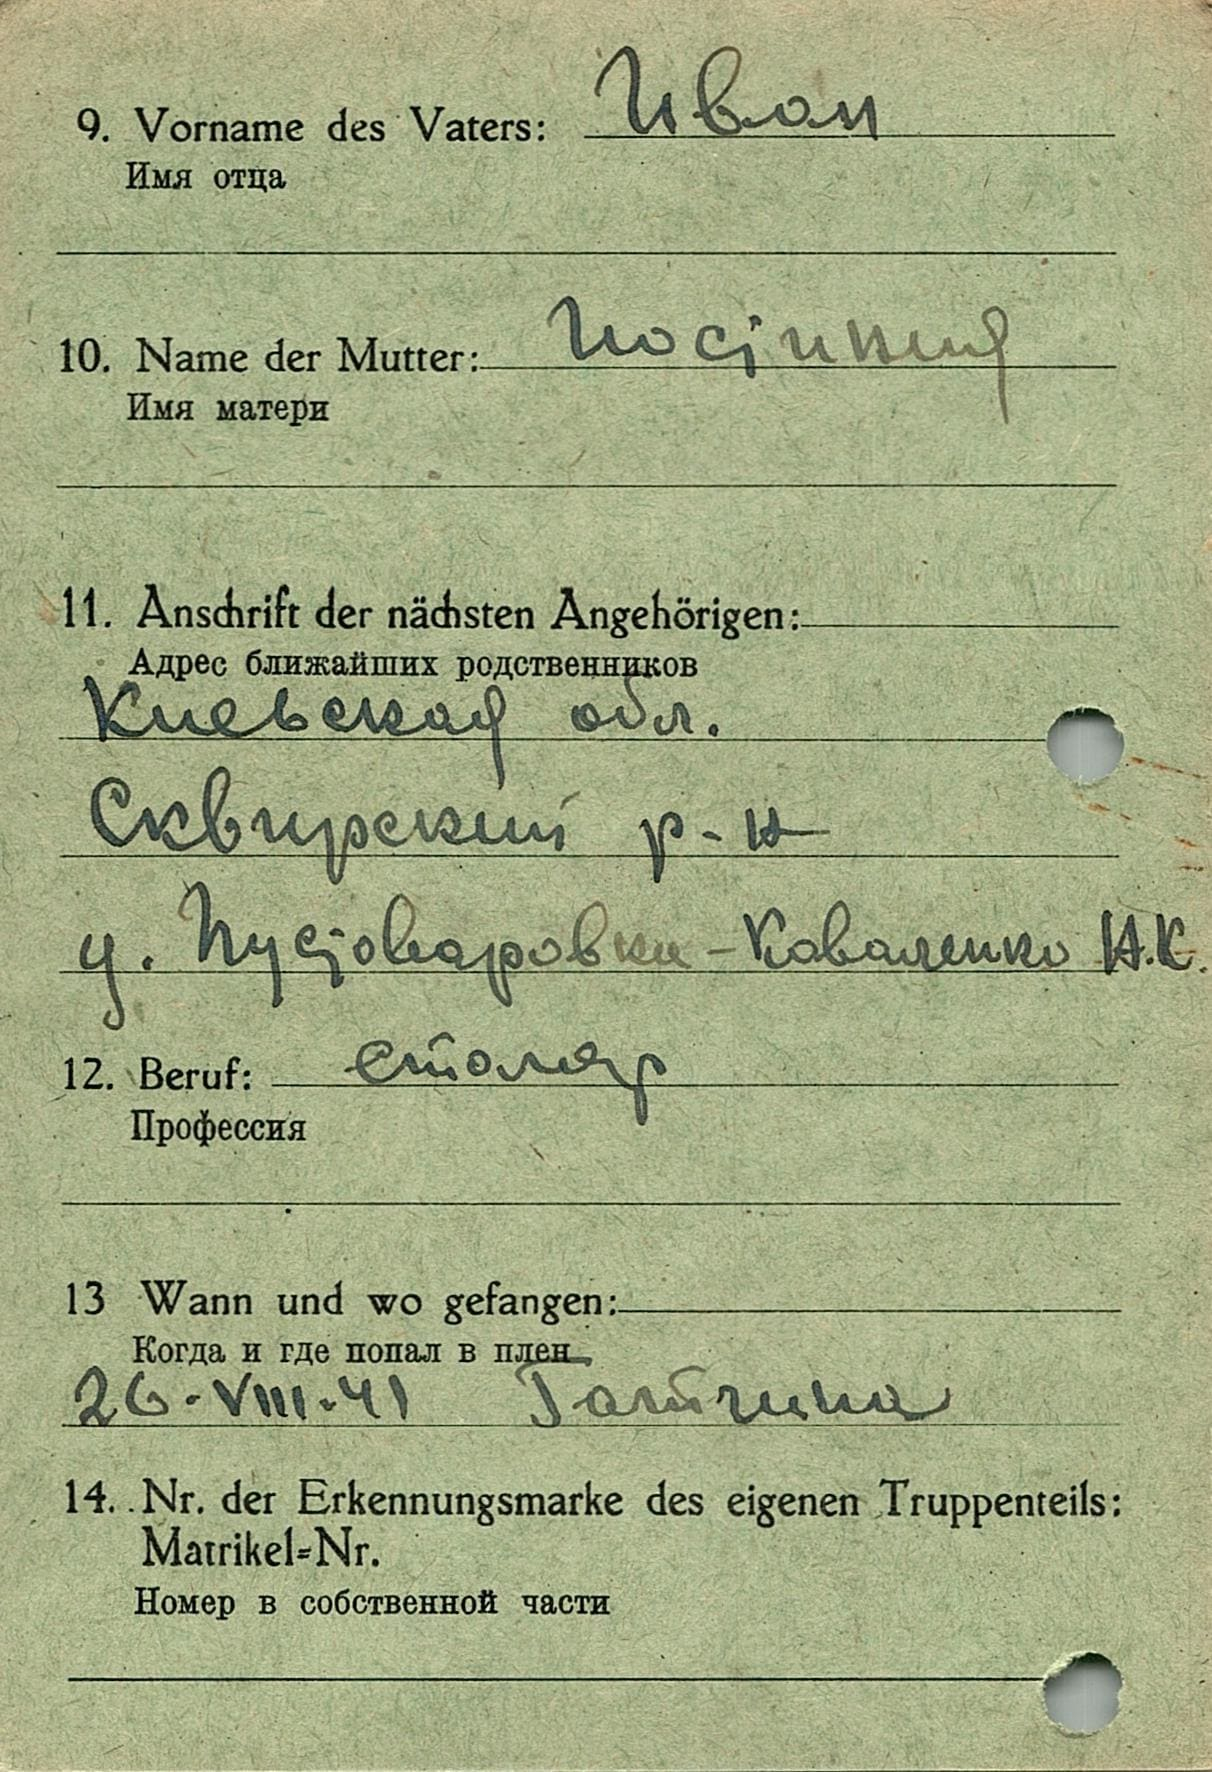 9. Vorname des Vaters: Иван
Имя отца
10. Name der Mutter:
Имя матери
11. Anschrift der nächsten Angehörigen:
Адрес ближайших родственников
Киевская обл.
Сквирский р-н
Пустоваровка - Коваленко Н.К.
12. Beruf: столяр
Профессия
13 Wann und wo gefangen:
Когда и где попал в плен
26-VIII.41 Гатчина
14. Nr. der Erkennungsmarke des eigenen Truppenteils:
Matrikel-Nr.
Номер в собственной части